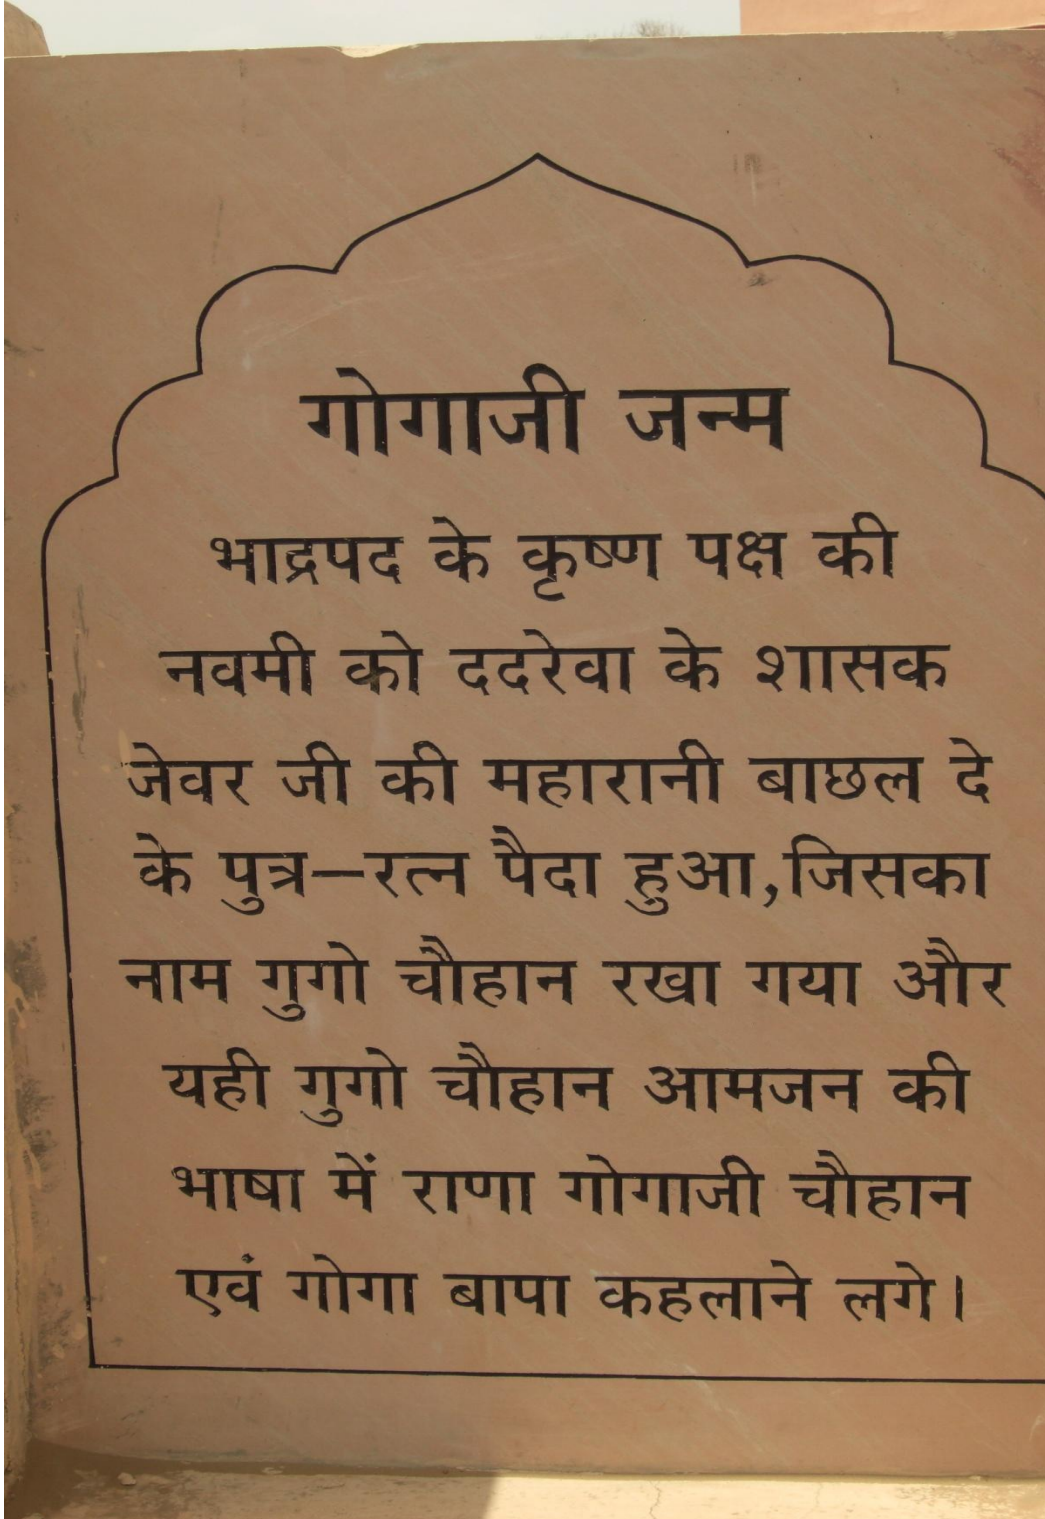 गोगाजी जन्म
भाद्रपद के कृष्ण पक्ष की
नवमी को ददरेवा के शासक
जेवर जी की महारानी बाछल दे
के पुत्र–रत्न पैदा हुआ,जिसका
नाम गुगो चौहान रखा गया और
यही गुगो चौहान आमजन की
भाषा में राणा गोगाजी चौहान
एवं गोगा बापा कहलाने लगे।